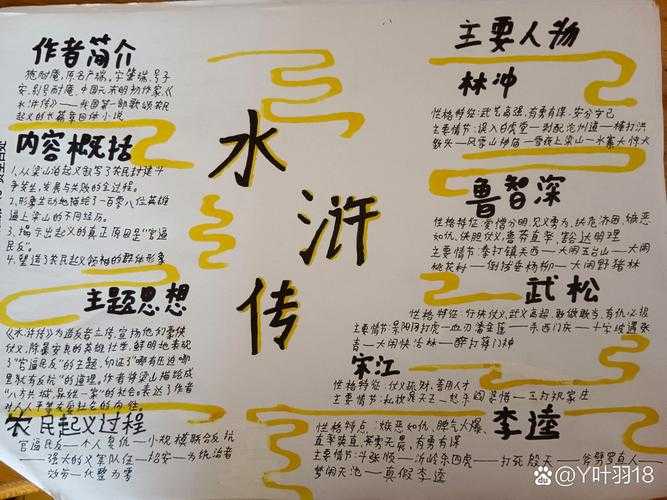 水浒传
作者简介
施耐庵,原名彦端,字肇瑞,号子
安,别号耐庵,中国元末明初作家《
水浒传》——我国第一部歌颂农民
起义的长篇章回体小说
内容概括
1.从梁山泊起义描写了农民封建斗
争发生、发展与失败的全过程。
2.形象生动地描绘了一百零八位英雄
逼上梁山的不同经历。
3.揭示出起义的真正原因是“官逼
民反”。
4.塑造了农民起义领袖的群体形象
主题思想
《水浒传》为造反者立传,宣扬他们豪侠
仗义,除暴安良的英雄壮举,鲜明地表现
了“官逼民反”的主题,印证了“哪有压迫哪
里就有反抗”的道理,作者将梁山描绘成
“八方共域,异姓一家”的社会。表达了作者
对人人平等
的向往。
农民起义过程
官逼民反——个人复仇——小规模联合反抗
——强大的义军队伍——招安——为统治者
效劳——
主要人物
林冲
性格特征:武艺高强,有勇有谋,安分守己
主要情节:误入白虎堂——刺配沧州道——棒打洪
教头——风雪山神庙——雪夜上梁山——火并
鲁智深
性格特征:爱憎分明,见义勇为,扶危济困,嫉恶
如仇,侠胆仗义,豁达明理
主要情节:拳打镇关西——大闹五台山——大闹
桃花村——倒拔垂杨柳——大闹野猪林
武松
性格特征:行侠仗义,武艺高超,敢做敢当,有仇必报
主要情节:景阳冈打虎——血刃潘金莲——杀西门庆——十字坡遇张
青——大闹快活林——醉打蒋门神
宋江
性格特征:仗义疏财,善用人才
主要情节:私放晁天王——怒杀阎婆惜——三打祝家庄
李逵
性格特点:嫉恶如仇,脾气火爆,
直率鲁莽,英勇无畏,有勇有谋
主要情节:斗张顺——沂岭杀四虎——打死殷天
梦闹天池——真假李逵
Bai百科 @Y叶羽18